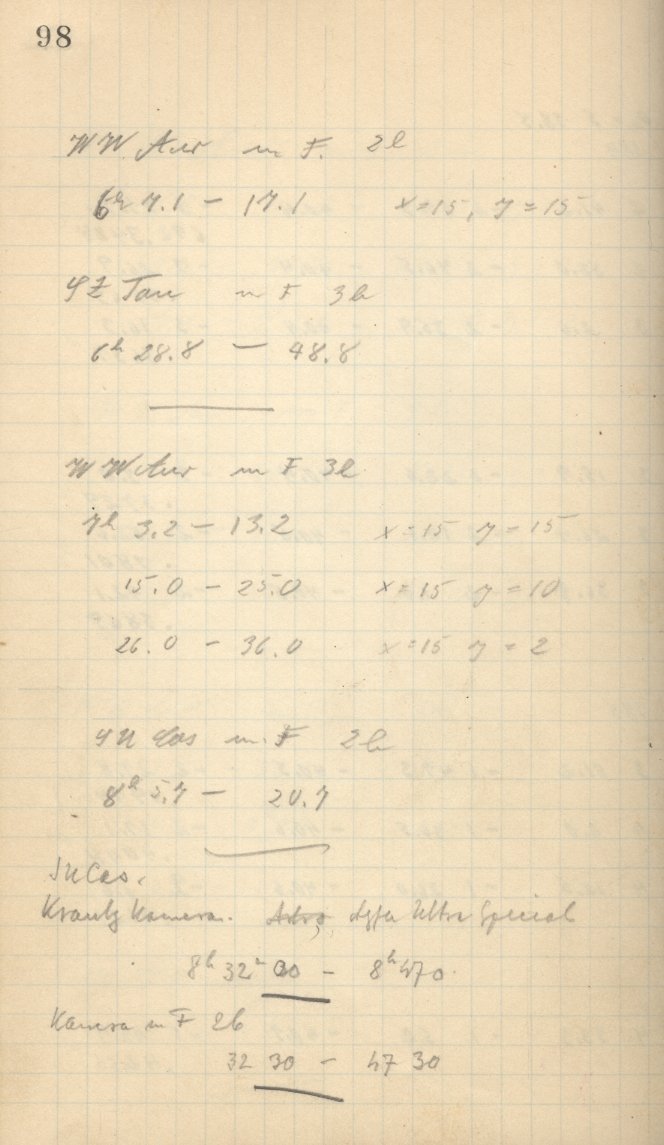 98
WW Aur m F. 2b
6h 7.1 - 17.1 x=15, y=15
SZ Tau m F 3b
6h 28.8 - 48.8
WW Aur m F 3b
7h 3.2 - 13.2 x=15 y=15
15.0 - 25.0 x=15 y=10
26.0 - 36.0 x=15 y=2
SU Cas m. F 2b
8h 5.7 - 20.7
SU Cas.
Krantz Kamera. Agfa Ultra Special
8h 32m 00 - 8h 47 0
Kamera m F 2b
32 30 - 47 30